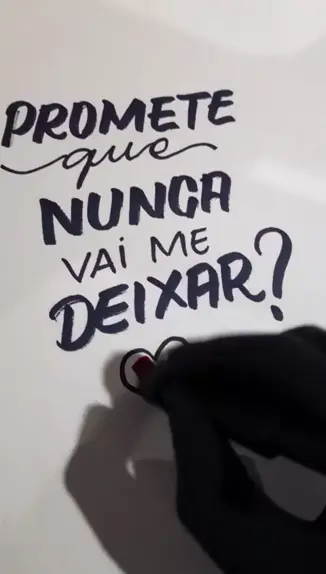 PROMETE
que
NUNCA
VAI ME
DEIXAR?